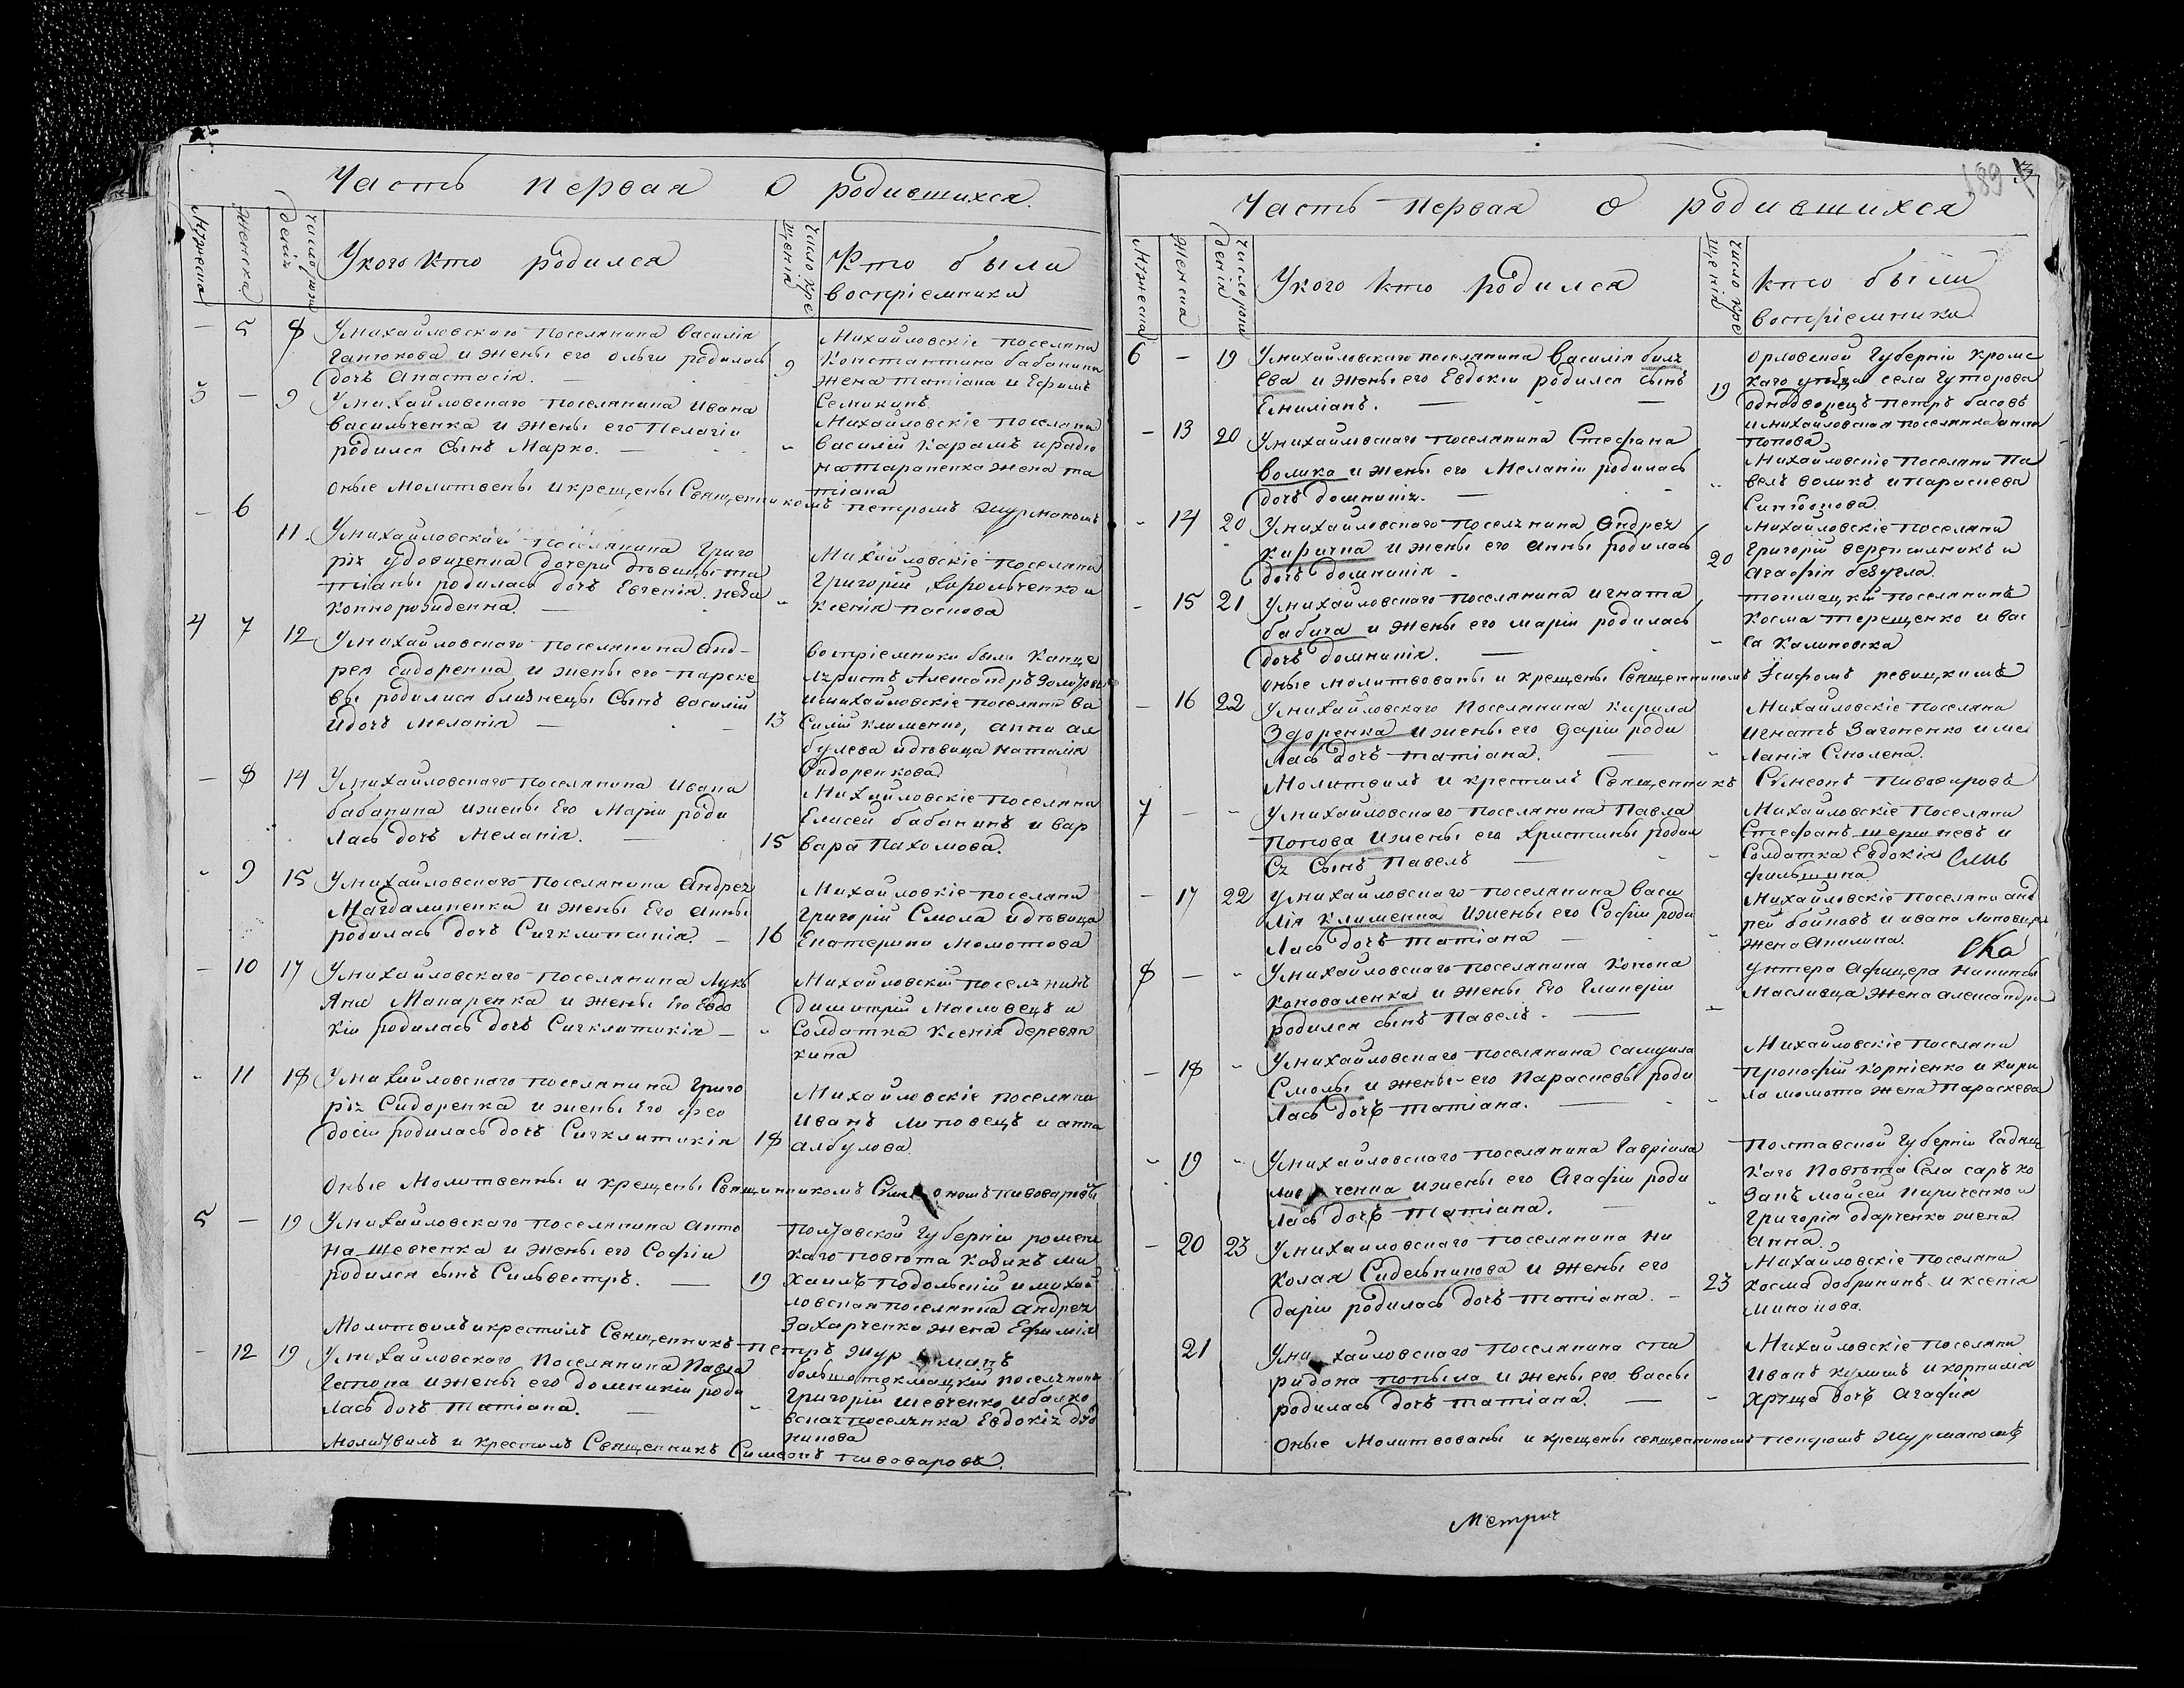 Часть первая о родившихся.
Мужеска
Женска
Число рож
денія
У кого кто родился
Число кре
щенія
Кто были
воспріемники
— 5 8 У михайловскаго поселянина василія
Ганюкова и жены его ольги родилась
дочь Анастасія. — 9
Михайловскіе поселяна
Константина бабанина
жена татіана и Ефимъ
Семикинъ
3 — 9 У михайловскаго поселянина ивана
васильченка и жены его Пелагіи
родился сынъ Марко. —
Михайловскіе поселяна
василій Карамъ и родіо
на тараненка жена та
тіана
оные Молитвены и крещены Священникомъ петромъ журманомъ
— 6
11. У михайловскаго поселянина Григо
рія удовиченка дочери дѣвицы та
тіаны родилась дочь Евгенія. неза
конно рожденна. —
Михайловскіе поселяна
Григорій и
ксенія
4 7 12 У михайловскаго поселянина Анд-
рея Сидоренка и жены его параске
вы родились близнецы Сынъ василій
и дочь Меланія — 13
воспріемники были Канце
ляристъ Александръ
и михайловскіе поселяна ва
силій клименко, анна ал
булева и дѣвица наталія
Сидоренкова
— 8 14 У михайловскаго поселянина Ивана
бабанина и жены Его Маріи роди
лась дочь Меланія. 15
Михайловскіе поселяна
Елисей бабанинъ и вар
вара Пахомова.
- 9 15 У михайловскаго поселянина Андрея
Магдалиненка и жены Его анны
родилась дочь — 16
Михайловскіе поселяна
Григорій Смола и дѣвица
Екатерина Момотова
— 10 17 У михайловскаго поселянина Лукь
яна Макаренка и жены Его Евдо
кіи родилась дочь Сигклитикія —
Михайловскій поселянинъ
Димитрій Масловецъ и
Солдатка Ксенія деревян
кина
- 11 18 У михайловскаго поселянина Григо
рія Сидоренка и жены Его фео
досіи родилась дочь Сигклитикія 18
Михайловскіе поселяна
Иванъ Липовецъ и анна
албулова
Оные Молитвенны и крещены Священникомъ пивоваровы
5 — 19 У михайловскаго поселянина анто
на Шевченка и жены его Софіи
родился сынъ Сильвестръ. — 19
Полтавской Губерніи ромен
каго повѣта козакъ ми
хаилъ подольскій и михай
ловская поселянка андрея
Захарченка жена Ефимія
Молитвилъ и крестилъ Священникъ петръ журманъ
- 12 19 У михайловскаго поселянина Павла
и жены его домникіи роди
лась дочь татіана. —
большотокмацкій поселянинъ
Григорій шевченко и
поселянка Евдокія
Молитвилъ и крестилъ Священникъ Симеонъ пивоваровъ.
189
Часть первая о родившихся
Мужеска
Женска
Число рож
денія
У кого кто родился
Число кре
щенія
Кто были
воспріемники
6 — 19 У михайловскаго поселянина василія
и жены его Евдокіи родился сынъ
Емиліанъ. — 19
орловской Губерніи кромс
каго уѣзда села гуторова
однодворецъ петръ басовъ
и михайловская поселянка анна
попова
— 13 20 У михайловскаго поселянина Стефана
волика и жены его Меланіи родилась
дочь домникія. —
Михайловскіе поселяна Па
велъ воликъ и параскева
- 14 20 У михайловскаго поселянина Андрея
Киричка и жены его анны родилась
дочь домникія - 20
Михайловскіе поселяна
Григорій и
агафія безугла.
- 15 21 У михайловскаго поселянина игната
бабича и жены его маріи родилась
дочь домникія. —
токмацкій поселянинъ
косма терещенко и вас
са Калиновска
оные молитвованы и крещены Священникомъ Іосифомъ
— 16 22 У михайловскаго Поселянина кирила
Здоренка и жены его дарьи роди
лась дочь татіана. —
Михайловскіе поселяна
игнатъ Загоненко и ме
ланія Смолена.
Молитвилъ и крестилъ Священникъ Сѵмеонъ пивоваровъ
7 — - У михайловскаго поселянина Павла
Попова и жены его христины родил
ся Сынъ Павелъ —
Михайловскіе Поселяна
Стефанъ и
Солдатка Евдокія
— 17 22 У михайловскаго поселянина васи
лія клименка и жены его Софіи роди
лась дочь татіана —
Михайловскіе поселяна анд
рей войновъ и ивана
жена Акилина.
8 — - У михайловскаго поселянина Конона
Коноваленка и жены Его Гликеріи
родился сынъ Павелъ. —
Унтера Афицера никиты
Масливца жена александра
— 18 - У михайловскаго поселянина самуила
Смолы и жены его Параскевы роди
лась дочь татіана. —
Михайловскіе поселяна
Прокофій корніенко и кири
ла момота жена Параскева
- 19 - У михайловскаго поселянина Гавріила
и жены его Агафіи роди
лась дочь татіана. —
Полтавской Губерніи Гадяц
каго Повѣта Села саръ ко
закъ мойсей кириченко и
Григорія одарченка жена
анна.
— 20 23 У михайловскаго поселянина ни
колая Сидельникова и жены его
даріи родилась дочь татіана. — 23
Михайловскіе поселяна
косма добрикинъ и ксенія
минакова.
21 У михайловскаго поселянина спи
ридона и жены его вассы
родилась дочь татіана. —
Михайловскіе поселяна
Иванъ кулишъ и корнилія
хряща дочь агафія
Оные Молитвованы и крещены священникомъ петромъ журманомъ
Метрич